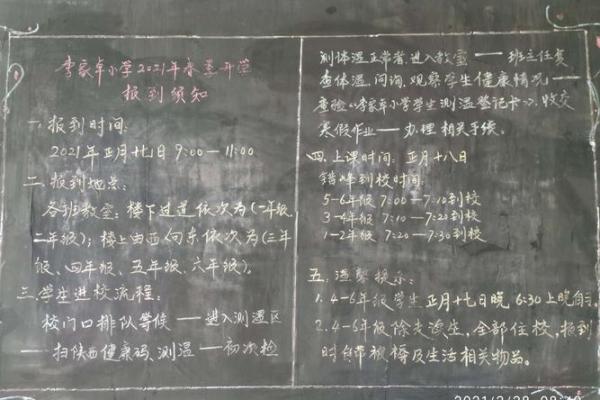 李家卓小学2021年春季开学
报到须知
一、报到时间:
2021年正月十七日 9:00—11:00
二、报到地点:
各班教室:楼下过道依次为(一年级、
二年级);楼上由西向东依次为(三年
级、四年级、五年级、六年级)。
三、学生进校流程:
校门口排队等候——进入测温区
——扫陕西健康码、测温——初次检
测体温正常者,进入教室——班主任复
查体温、问询、观察学生健康情况——
查验《李家卓小学学生测温登记卡》、收交
寒假作业——办理相关手续。
四、上课时间:正月十八日
错峰到校时间:
5-6年级 7:00—7:10到校
3-4年级 7:10—7:20到校
1-2年级 7:20—7:30到校
五、温馨提示:
1. 4-6年级学生正月十七日晚 6:30上晚自习
2. 4-6年级除走读生,全部住校,报到
时自带被褥及生活相关物品。